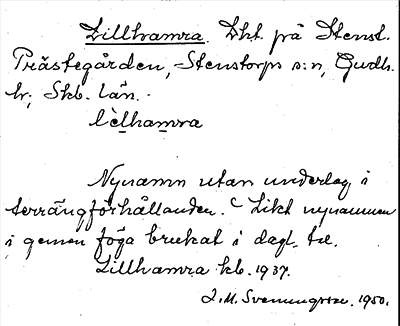 Lillhamra. Lht. på Stenst.
Prästegården, Stenstorps s:n, Gudh.
hr; Skb. län.
lèlhamra
Nynamn utan underlag i
terrängförhållanden. Likt nynamnen
i gemen föga brukat i dagl. tal.
Lillhamra kb. 1937.
J. M. Svenungsson. 1950.